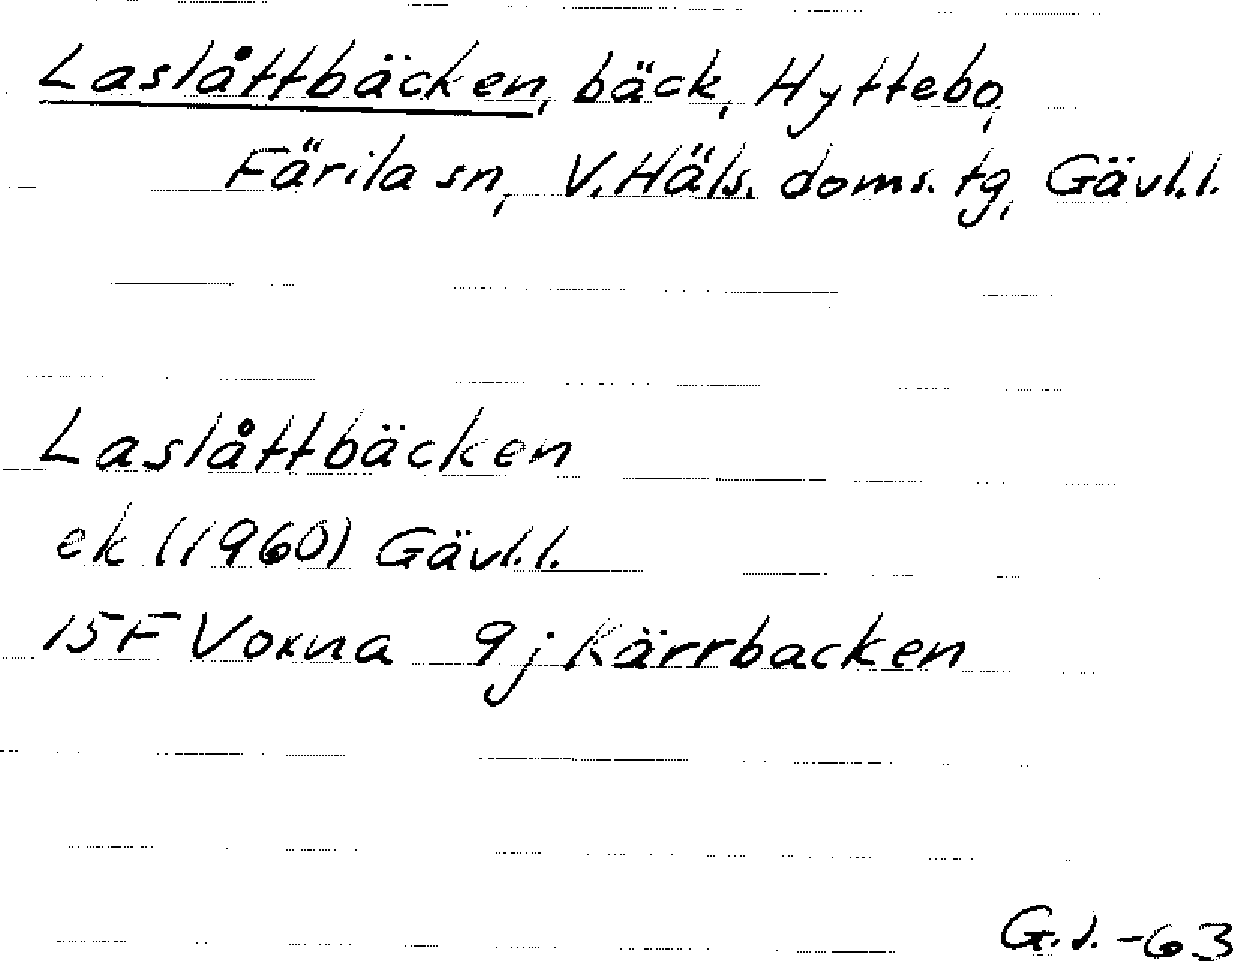 Laslåttbäcken, bäck, Hyttebo,
Färila sn, V. Häls. doms. tg, Gävl.l.
Laslåttbäcken
ek (1960) Gävl.l.
15F Voxna 9j Kärrbacken
G.J.-63